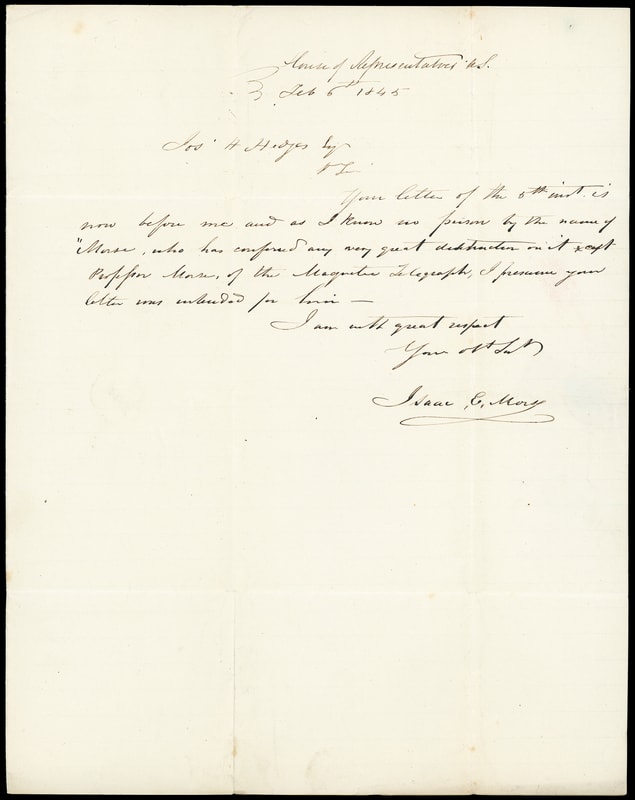 House of Representatives U.S.
Feb 6th 1845
Jos. H Hedges Esq
Dr Sir
Your letter of the 5th inst. is
now before me and as I know no person by the name of
"Morse, who has confered any very great distinction on it except
Professor Morse, of the Magnetic Telegraph, I presume your
letter was intended for him —
I am with great respect
Your obt Svt
Isaac E. Morse